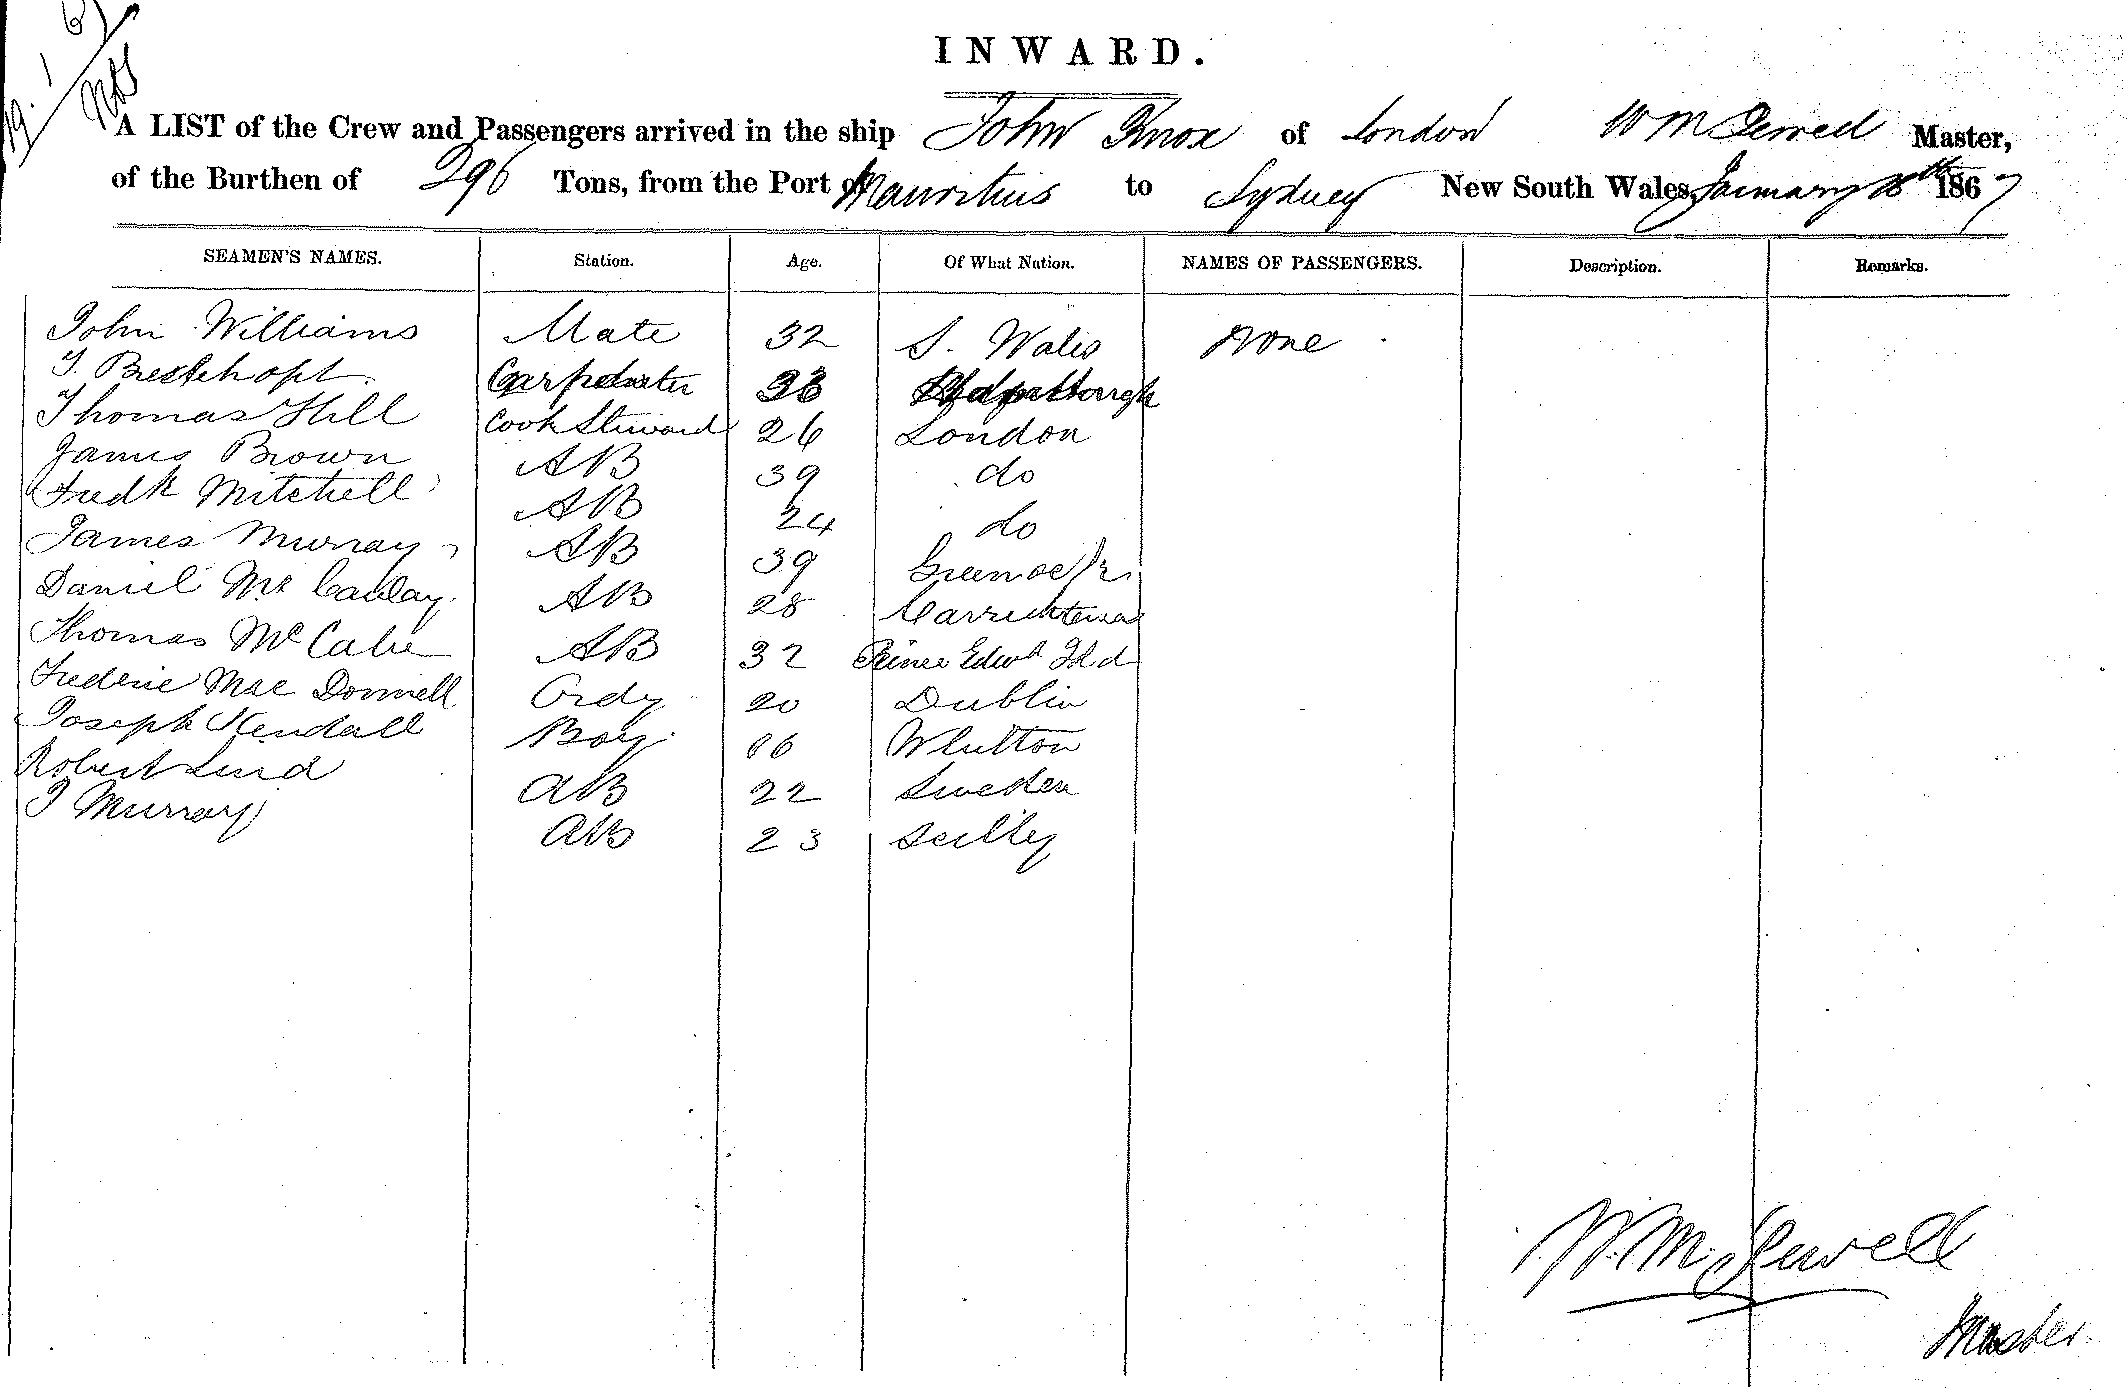 INWARD.
A LIST of the Crew and Passengers arrived in the ship John Knox of London W M Jewell Master,
of the Burthen of 296 Tons, from the Port of Mauritius to Sydney New South Wales, January 18th 1867
SEAMEN'S NAMES. Station. Age. Of What Nation. NAMES OF PASSENGERS. Description. Remarks.
John Williams Mate 32 S. Wales None
Carpenter
Thomas Hill Cook Steward 26 London
James Brown AB 39 do
Fredk Mitchell AB 24 do
James Murray AB 39 Greenock
Daniel AB 28
Thomas McCabe AB 32 Prince Edwd Isld
Frederic Mac Donnell Ordy 20 Dublin
Joseph Kendall Boy 16 Whitton
Robert Lind AB 22 Sweden
J Murray AB 23 Scilly
W. M. Jewell
Master